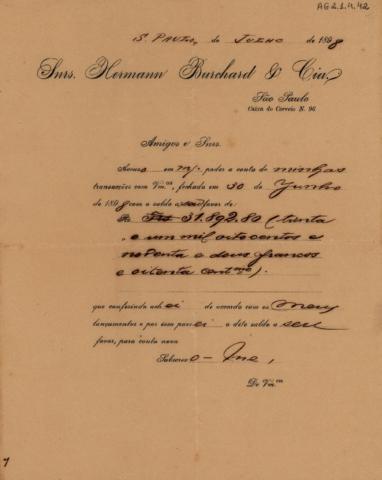 AG2.1.4.42
S. Paulo, de Julho de 1898
Snrs. Hermann Burchard & Cia,
São Paulo
Caixa do Correio N. 96
Amigos e Snrs.
em m/ poder a conta de minhas
transacções com Vm.ces fechada em 30 de Junho
de 1898 com o saldo a favor de:
Rs. Frs 31.892.80 (trinta
e um mil oitocentos e
noventa e dous francos
e oitenta cent.mos).
que conferindo achei de accordo com os meus
lançamentos e por isso passei o dito saldo a seu
favor, para conta nova
Sobrescr o-me,
De Vm.ces
1